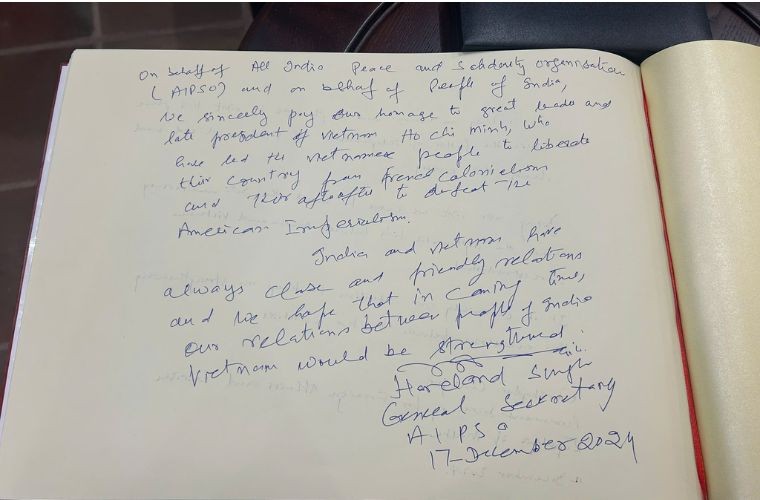 On behalf of All India Peace and Solidarity organisation
(AIPSO) and on blhaf of People of India,
We sincerely pay our homage to great leader and
late president of Vietnam Ho Chi Minh, who
have led the vietnamese people to liberate
thir country from french colonielism
and to defeat the
American Imperialism.
India and vietnam have
always close and friendly relations
and we hope that in coming time,
our relations between people of India
Vietnam would be strengthened.
Singh
General Secretary
AIPSO
17-December 2024